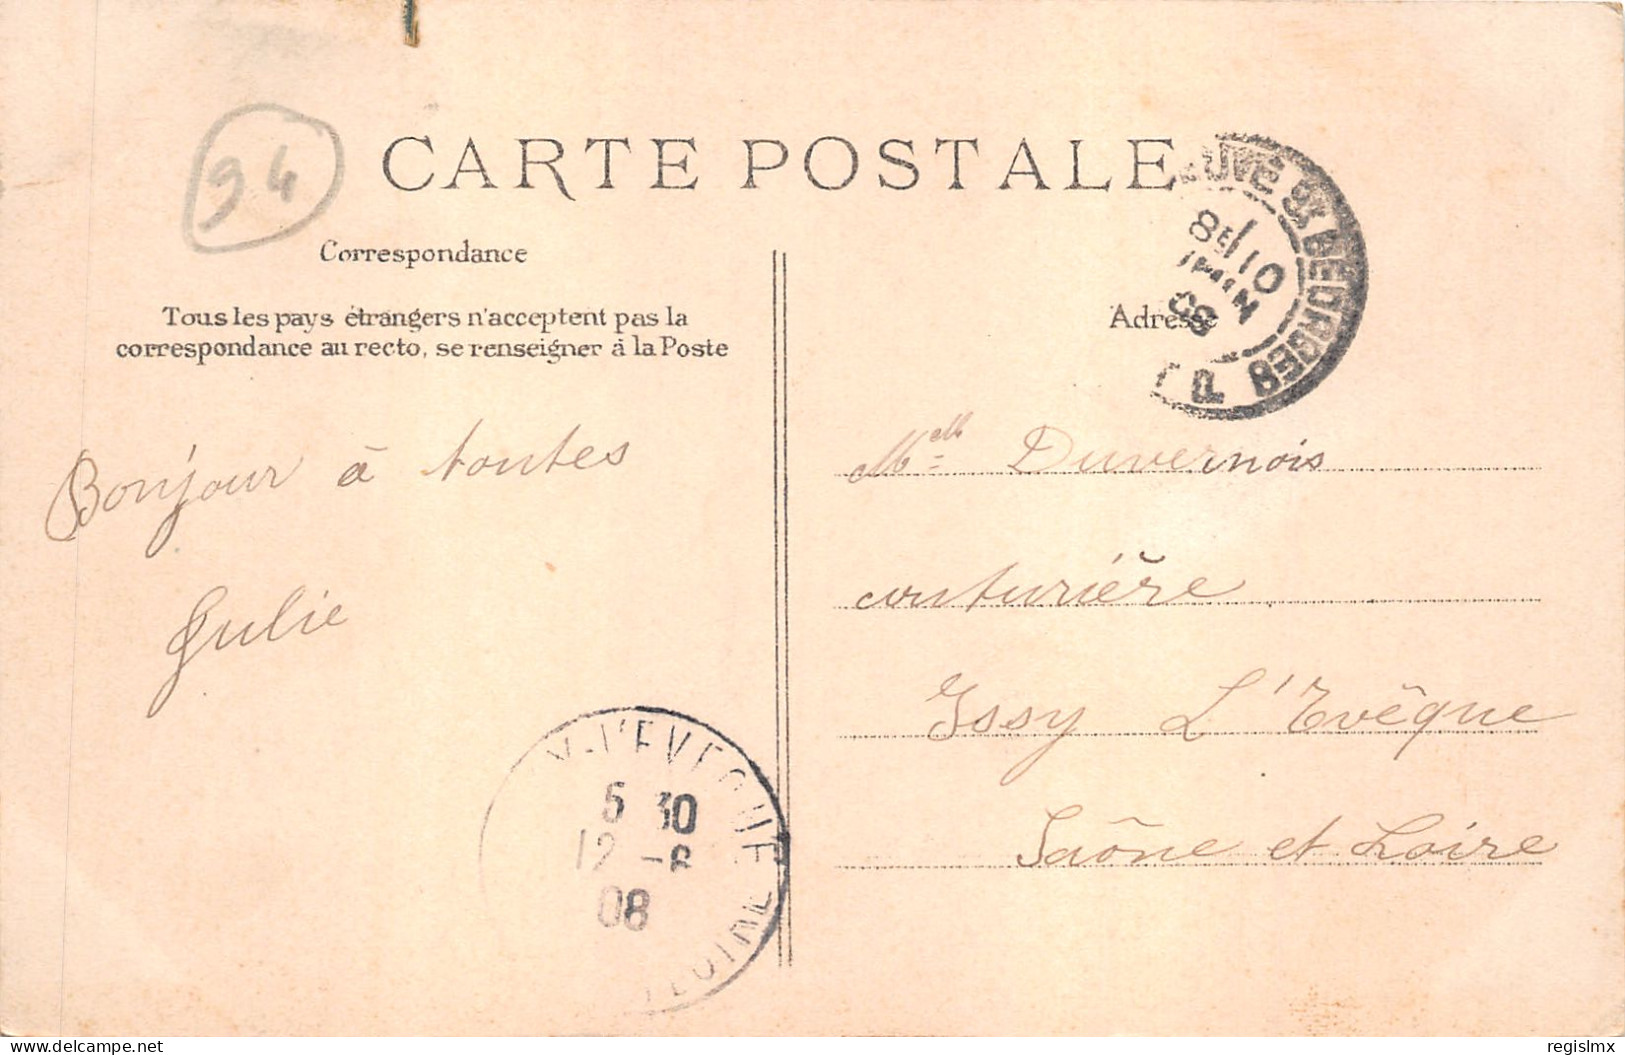 94
CARTE POSTALE
Correspondance
Tous les pays étrangers n'acceptent pas la
correspondance au recto, se renseigner à la Poste
Bonjour à toutes
Julie
Adresse
Melle Duvernois
couturière
Issy L'Evêque
Saône et Loire
UVE St GEORGES
Y-L'EVEQUE
5 30
12 -6
08
LOIRE
delcampe.net
regislmx